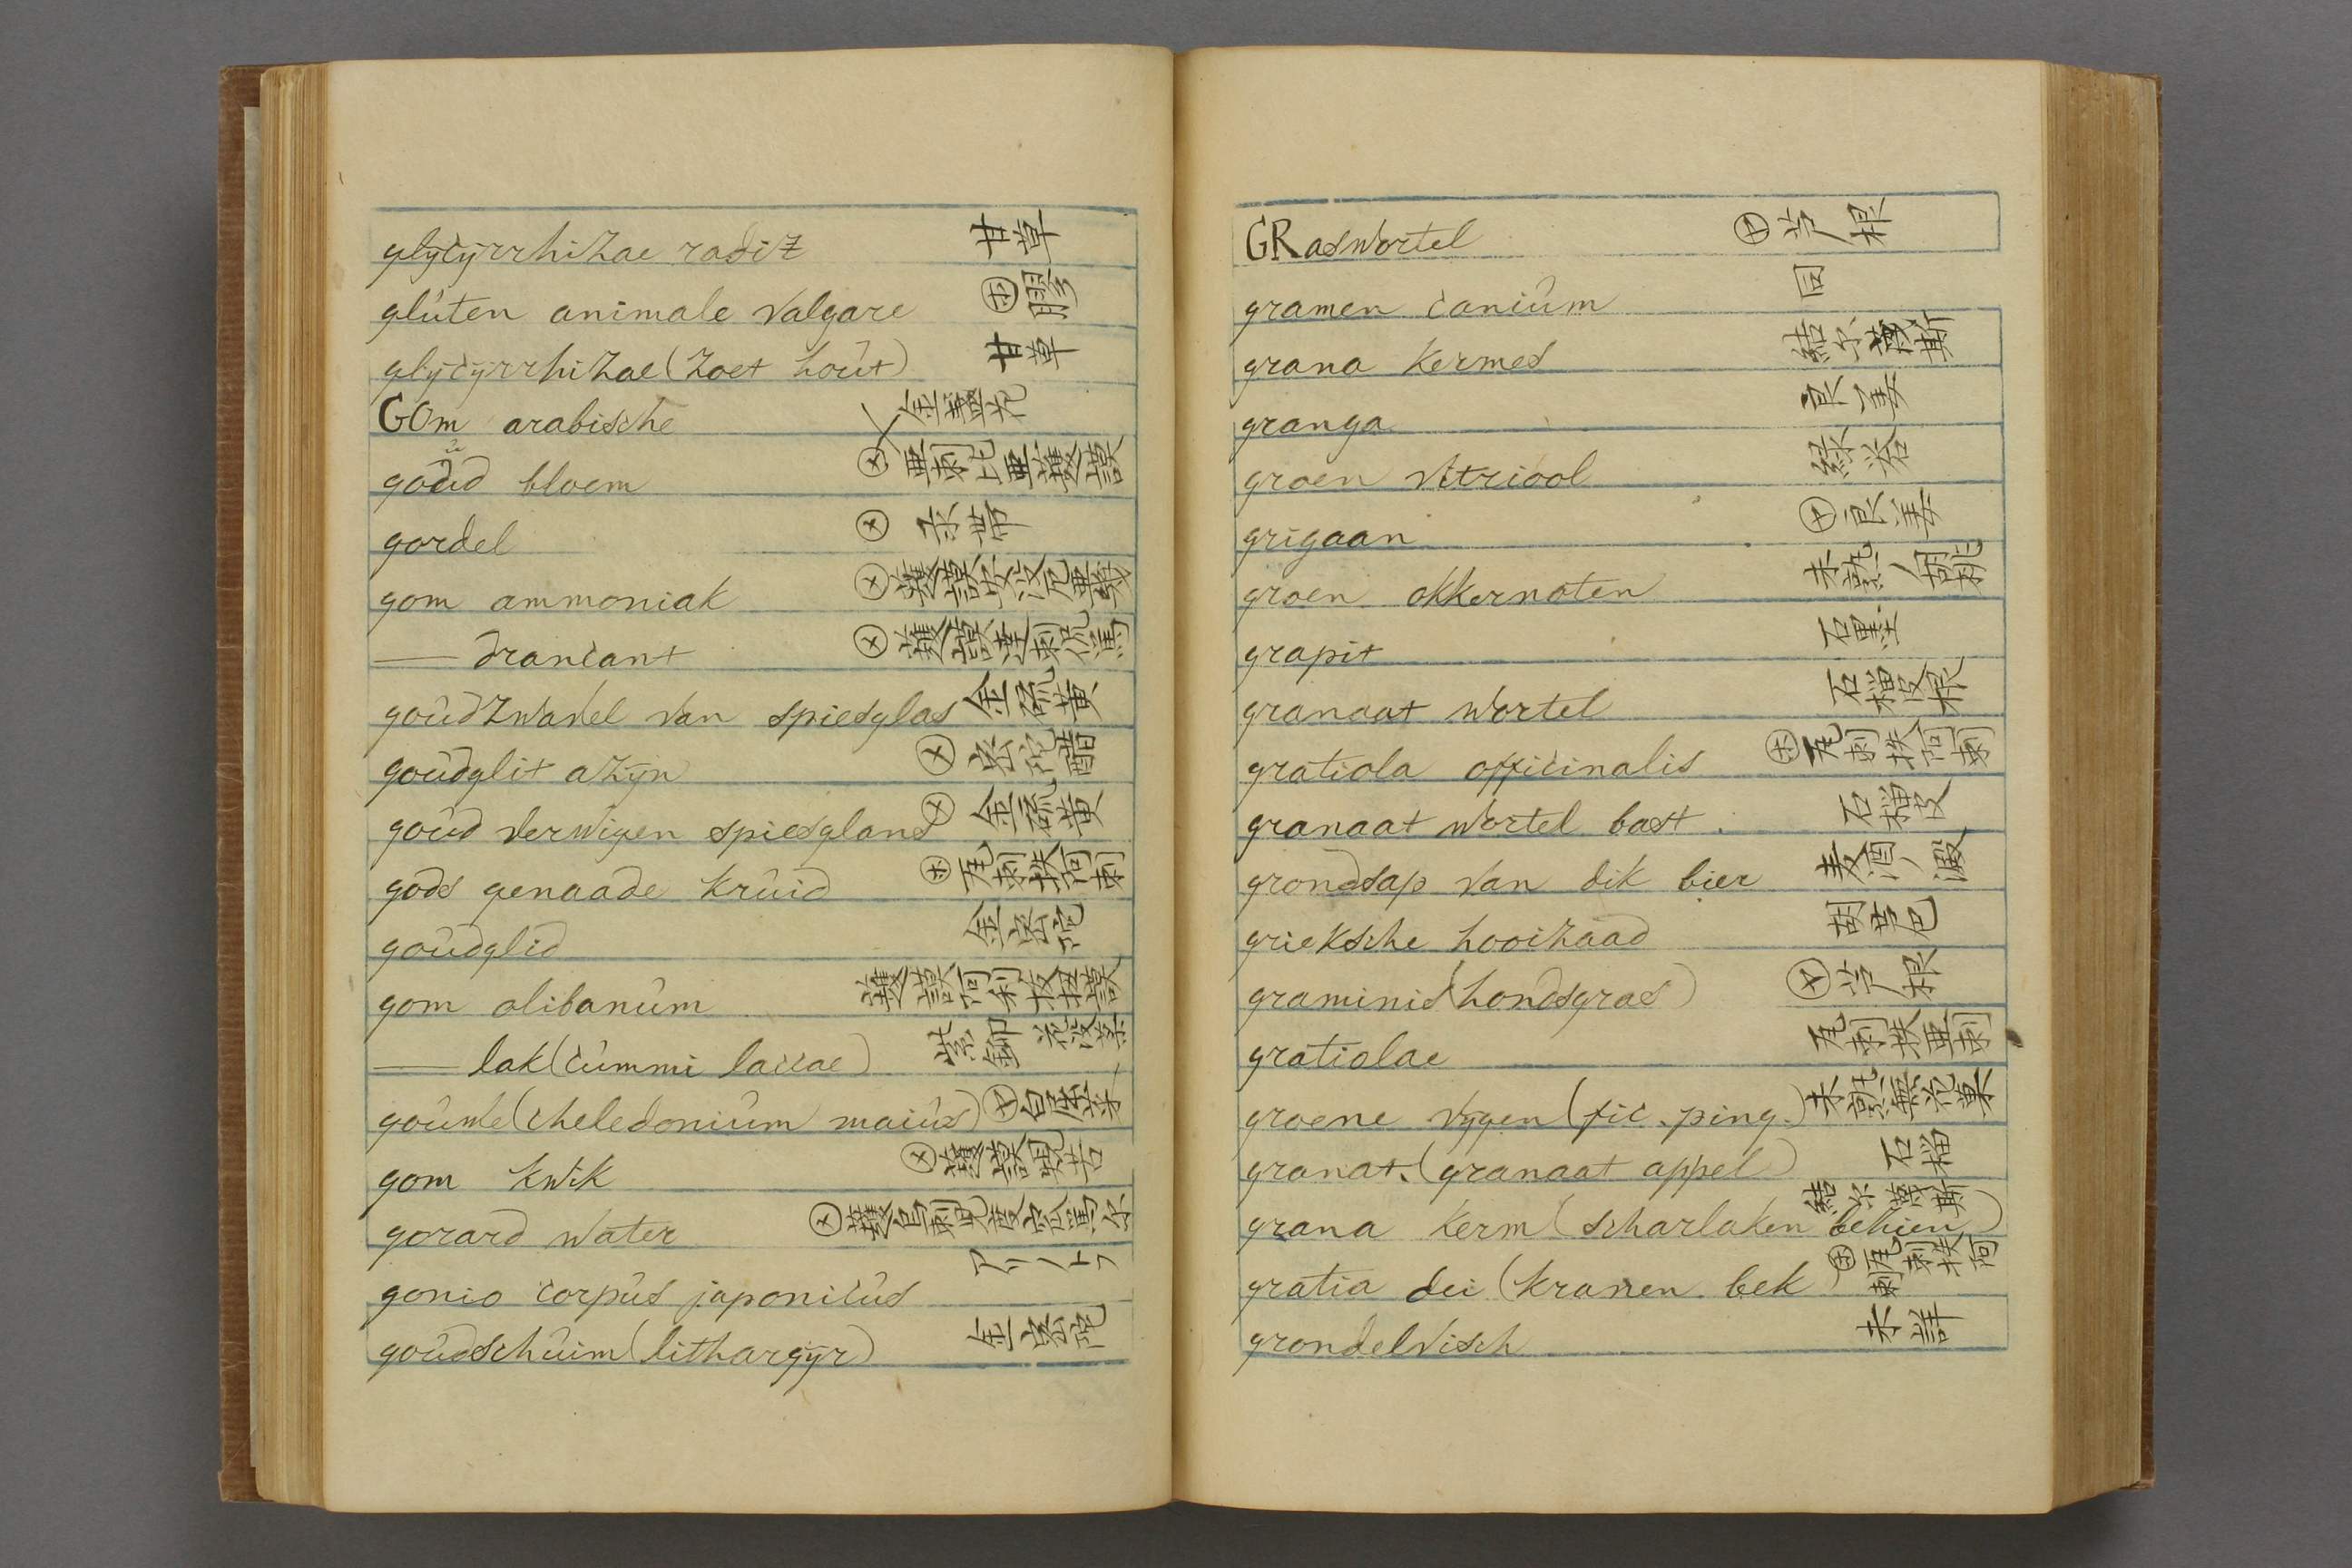 glÿcÿrrhizae radiz 甘草
glúten animale valgare ㊭ 膠
glÿcÿrrhizae (zoet hoút) 甘草
GOm arabische 金盞花
goúd bloem 亜刺比亜護謨
gordel 帯
gom ammoniak 護謨安没尼亜幾
— drancant 護謨達刺侃篤
goúdzwavel van spiesglas 金硫黄
goúdglit azÿn 密陀醋
goúd verwigen spiesglans 金硫黄
gods genaade krúid 刺
goúdglid 金密陀
gom olibanúm 護謨阿利抜扭謨
— lak (cúmmi laccae) 紫鉚 花没薬
goúwe (cheledoniúm maiús) 白屈菜
gom kwik 護謨
gorard water
gonio corpús japonicús
goúdschúim (lithargÿr) 金密陀
GRaswortel 茅根
gramen caniúm 同
grana kermes 結尓蔑斯
granga 良姜
groen vitriool 緑礬
grigaan 良姜
groen okkernoten 未熟ノ胡桃
grapit 石墨
granaat wortel 石榴根
gratiola officinalis 刺
granaat wortel bast. 石榴皮
grondsap van dik bier 麦酒ノ澱
grieksche hooizaad 胡芦巴
graminis (hondsgras) 茅根
gratiolae 亜刺
groene vÿgen (fic. ping.) 未熟無花果
granat. (granaat appel) 石榴
grana kerm (scharlaken bezien) 結尓蔑斯
gratia dei (kranen bek
grondelvisch 未詳